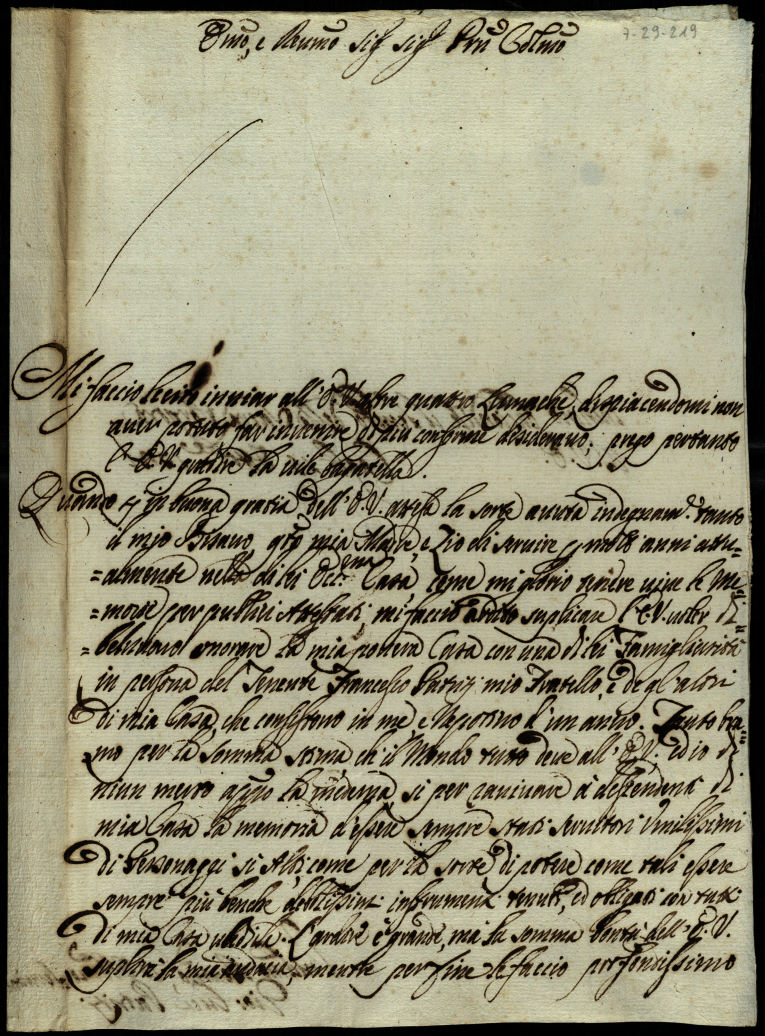 Emo, e Reumo Sig.r Sig.r Prñ Colmo
7-29-219
Mi faccio lecito inuiar all'E.V. altre quattro Lumache, dispiacendomi non
auer potuto far inuenire di più conforme desiderauo; prego pertanto
l'E.V. gradire la uile bagatella.
Quando p in buona gratia dell'E.V. attesa la sorte auuta indegnam.te tanto
il mio Bisauo, mia Madre, e Zio di seruire p molti anni attu=
=almente nella di lei Ecc.ma Casa come mi glorio tenere uiue le Me=
=morie per publici Attestati, mi faccio ardito suplicare l'E.V. uoler di
=bel nuouo onorare la mia pouera Casa con una di lei Famigliarità
in persona del Tenente Francesco Patrizi mio Fratello, e de gl'altri
di mia Casa, che consistono in me e Nepotino d'un anno. Tanto bra=
mo per la somma stima ch'il Mondo tutto deue all'E.V. ed io di
niun merito appo la medema, si per rauiuare a descendenti di
mia Casa la memoria d'essere sempre stati seruitori Vmilissimi
di Personaggi si Alti, come per la sorte di potere come tali essere
sempre più benche debolissimi instrumenti tenuti, ed obligati con tutti
di mia Casa ubidirla. L'ardire è grande, mà la somma Bontà dell'E.V.
suplirà la mia audacia, mentre per fine le faccio profondissimo